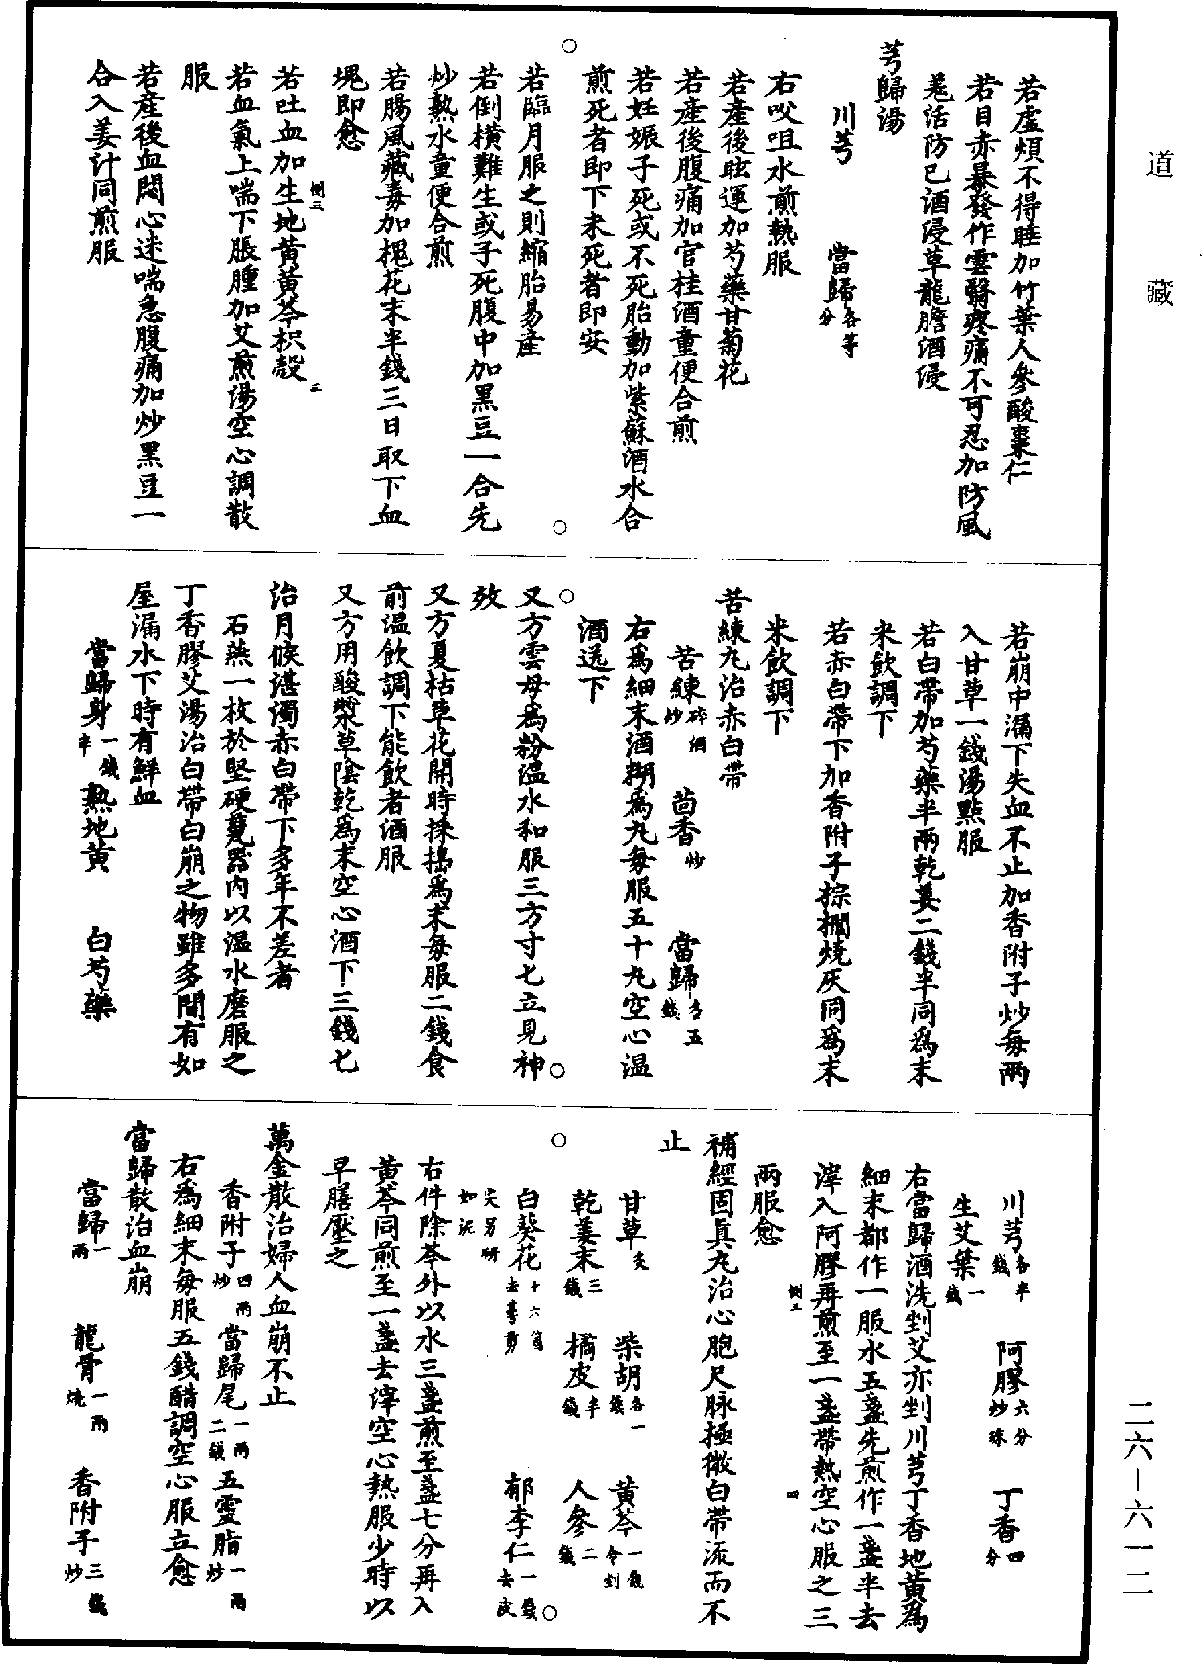 道藏
若虛煩不得睡加竹葉人參酸棗仁
若目赤暴發作雲翳疼痛不可忍加防風
羗活防已酒浸草龍膽酒浸
芎歸湯
川芎 當歸各等分
右㕮咀水煎熱服
若產後眩運加芍藥甘菊花
若產後腹痛加官桂酒童便合煎
若妊娠子死或不死胎動加紫蘇酒水合
煎死者即下未死者即安
若臨月服之則縮胎易產
若倒橫難生或子死腹中加黑豆一合先
炒熟水童便合煎
若腸風藏毒加槐花末半錢三日取下血
塊即愈
若吐血加生地黃黃芩枳殼
側三 三
若血氣上喘下脹腫加艾煎湯空心調散
服
若產後血悶心迷喘急腹痛加炒黑豆一
合入姜汁同煎服
若崩中漏下失血不止加香附子炒每兩
入甘草一錢湯點服
若白帶加芍藥半兩乾姜二錢半同為末
米飲調下
若赤白帶下加香附子棕櫚燒灰同為末
米飲調下
苦練丸治赤白帶
苦練碎酒炒 茴香炒 當歸各五錢
右為細末酒糊為丸每服五十丸空心溫
酒送下
又方雲母為粉溫水和服三方寸匕立見神
效
又方夏枯草花開時採搗為末每服二錢食
前溫飲調下能飲者酒服
又方用酸漿草陰乾為末空心酒下三錢匕
治月候湛濁赤白帶下多年不差者
石燕一枚於堅硬甆器內以溫水磨服之
丁香膠艾湯治白帶白崩之物雖多間有如
屋漏水下時有鮮血
當歸身一錢半 熟地黃 白芍藥
川芎各半錢 阿膠六分炒珠 丁香四分
生艾葉一錢
右當歸酒洗剉艾亦剉川芎丁香地黃為
細末都作一服水五盞先煎作一盞半去
滓入阿膠再煎至一盞帶熱空心服之三
側三 四
兩服愈
補經固真丸治心胞尺脉極微白帶流而不
止
甘草炙 柴胡各一錢 黃芩一錢令剉
乾姜末三錢 橘皮半錢 人參二錢
白葵花十六箇去萼剪 郁李仁一錢去皮
尖另研如泥
右件除芩外以水三盞煎至盞七分再入
黃芩同煎至一盞去滓空心熱服少時以
早膳壓之
萬金散治婦人血崩不止
香附子四兩炒 當歸尾一兩二錢 五靈脂一兩炒
右為細末每服五錢醋調空心服立愈
當歸散治血崩
當歸一兩 龍骨一兩燒 香附子三錢炒
二六—六一二